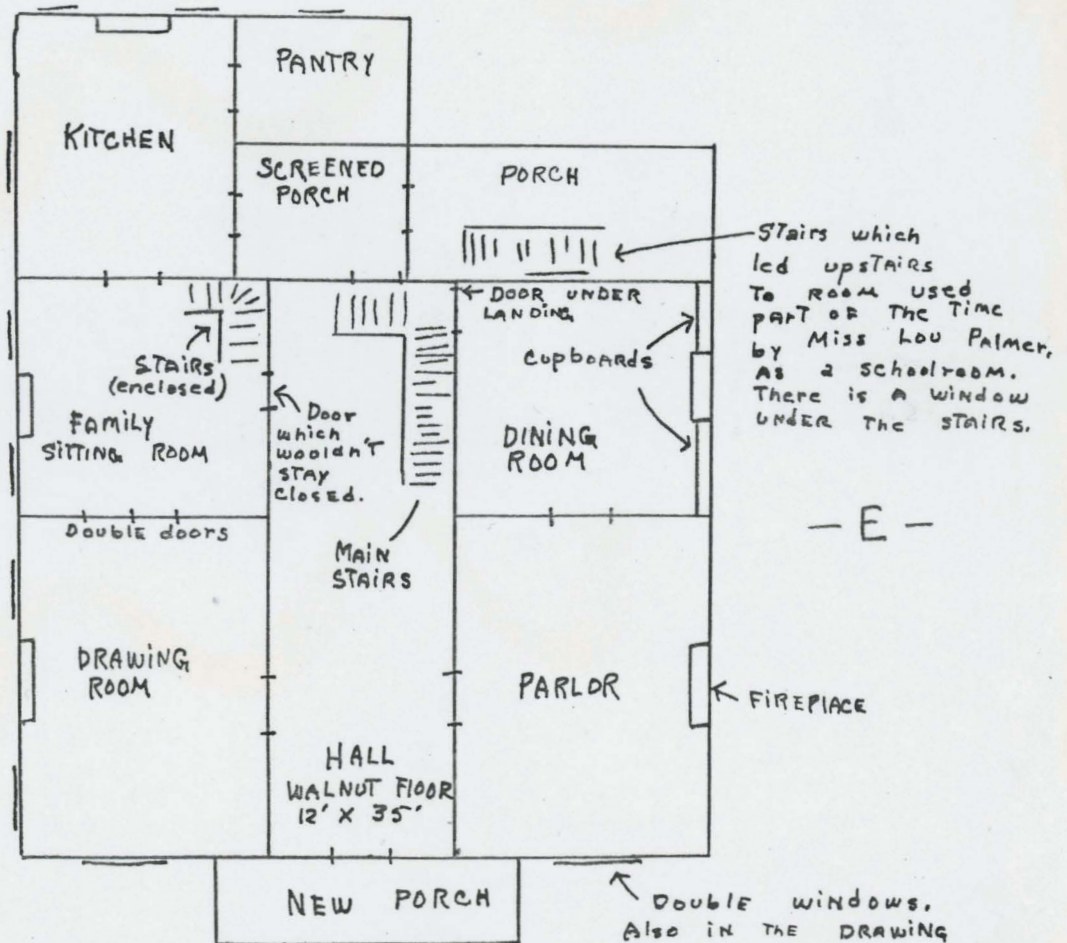 PANTRY
KITCHEN
SCREENED
PORCH
PORCH
Stairs which
led upstairs
To room used
part of the Time
by Miss Lou Palmer,
As a schoolroom.
There is a window
under the stairs.
DOOR UNDER
LANDING
Cupboards
STAIRS
(enclosed)
FAMILY
SITTING ROOM
Door
which
wouldn't
STAY
Closed.
DINING
ROOM
- E -
Double doors
MAIN
STAIRS
DRAWING
ROOM
PARLOR
FIREPLACE
HALL
WALNUT FLOOR
12' X 35'
NEW PORCH
Double windows.
Also in the DRAWING